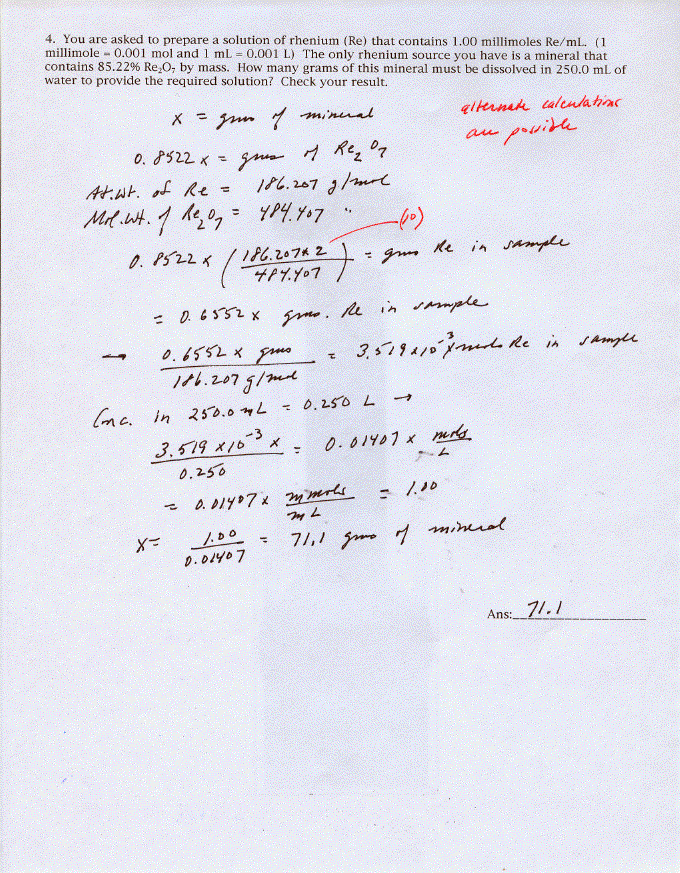 4. You are asked to prepare a solution of rhenium (Re) that contains 1.00 millimoles Re/mL. (1
millimole = 0.001 mol and 1 mL = 0.001 L) The only rhenium source you have is a mineral that
contains 85.22% Re₂O₇ by mass. How many grams of this mineral must be dissolved in 250.0 mL of
water to provide the required solution? Check your result.
alternate calculations
are possible
x = gms of mineral
0.8522 x = gms of Re₂O₇
At.wt. of Re = 186.207 g/mol
Mol.wt. of Re₂O₇ = 484.407 "
(10)
0.8522 x (186.207 * 2 / 484.407) = gms Re in sample
= 0.6552 x gms. Re in sample
→ 0.6552 x gms / 186.207 g/mol = 3.519 x 10⁻³ x mols Re in sample
Conc. in 250.0 mL = 0.250 L →
3.519 x 10⁻³ x / 0.250 = 0.01407 x mols / L
= 0.01407 x mmols / mL = 1.00
x = 1.00 / 0.01407 = 71.1 gms of mineral
Ans: 71.1